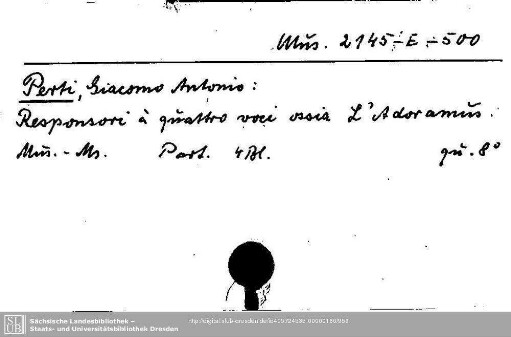 Mus. 2145-E-500
Perti, Giacomo Antonio:
Responsori à quattro voci ossia L'Adoramus.
Mus.-Ms. Part. 4 Bl. qu. 8°
Sächsische Landesbibliothek –
Staats- und Universitätsbibliothek Dresden